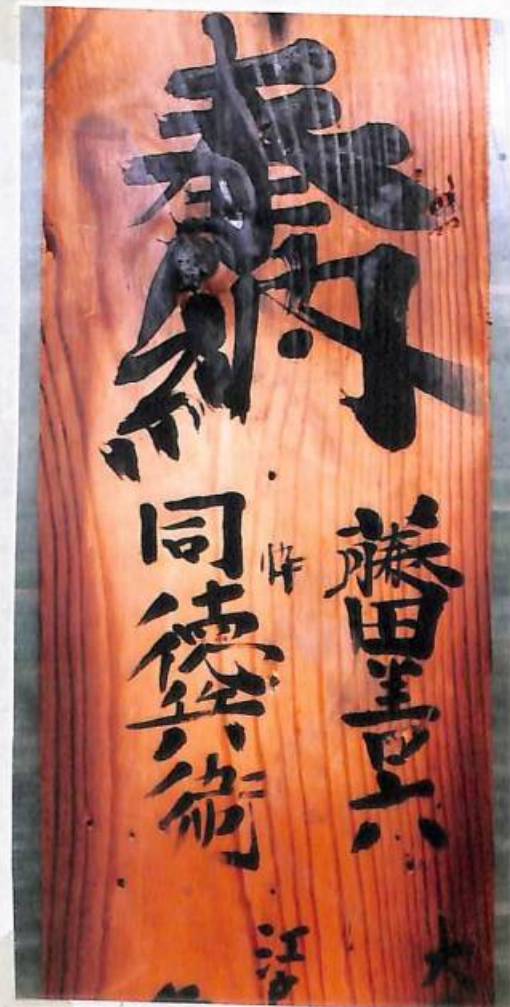 奉納
藤田善六
忰
同徳兵衛
江